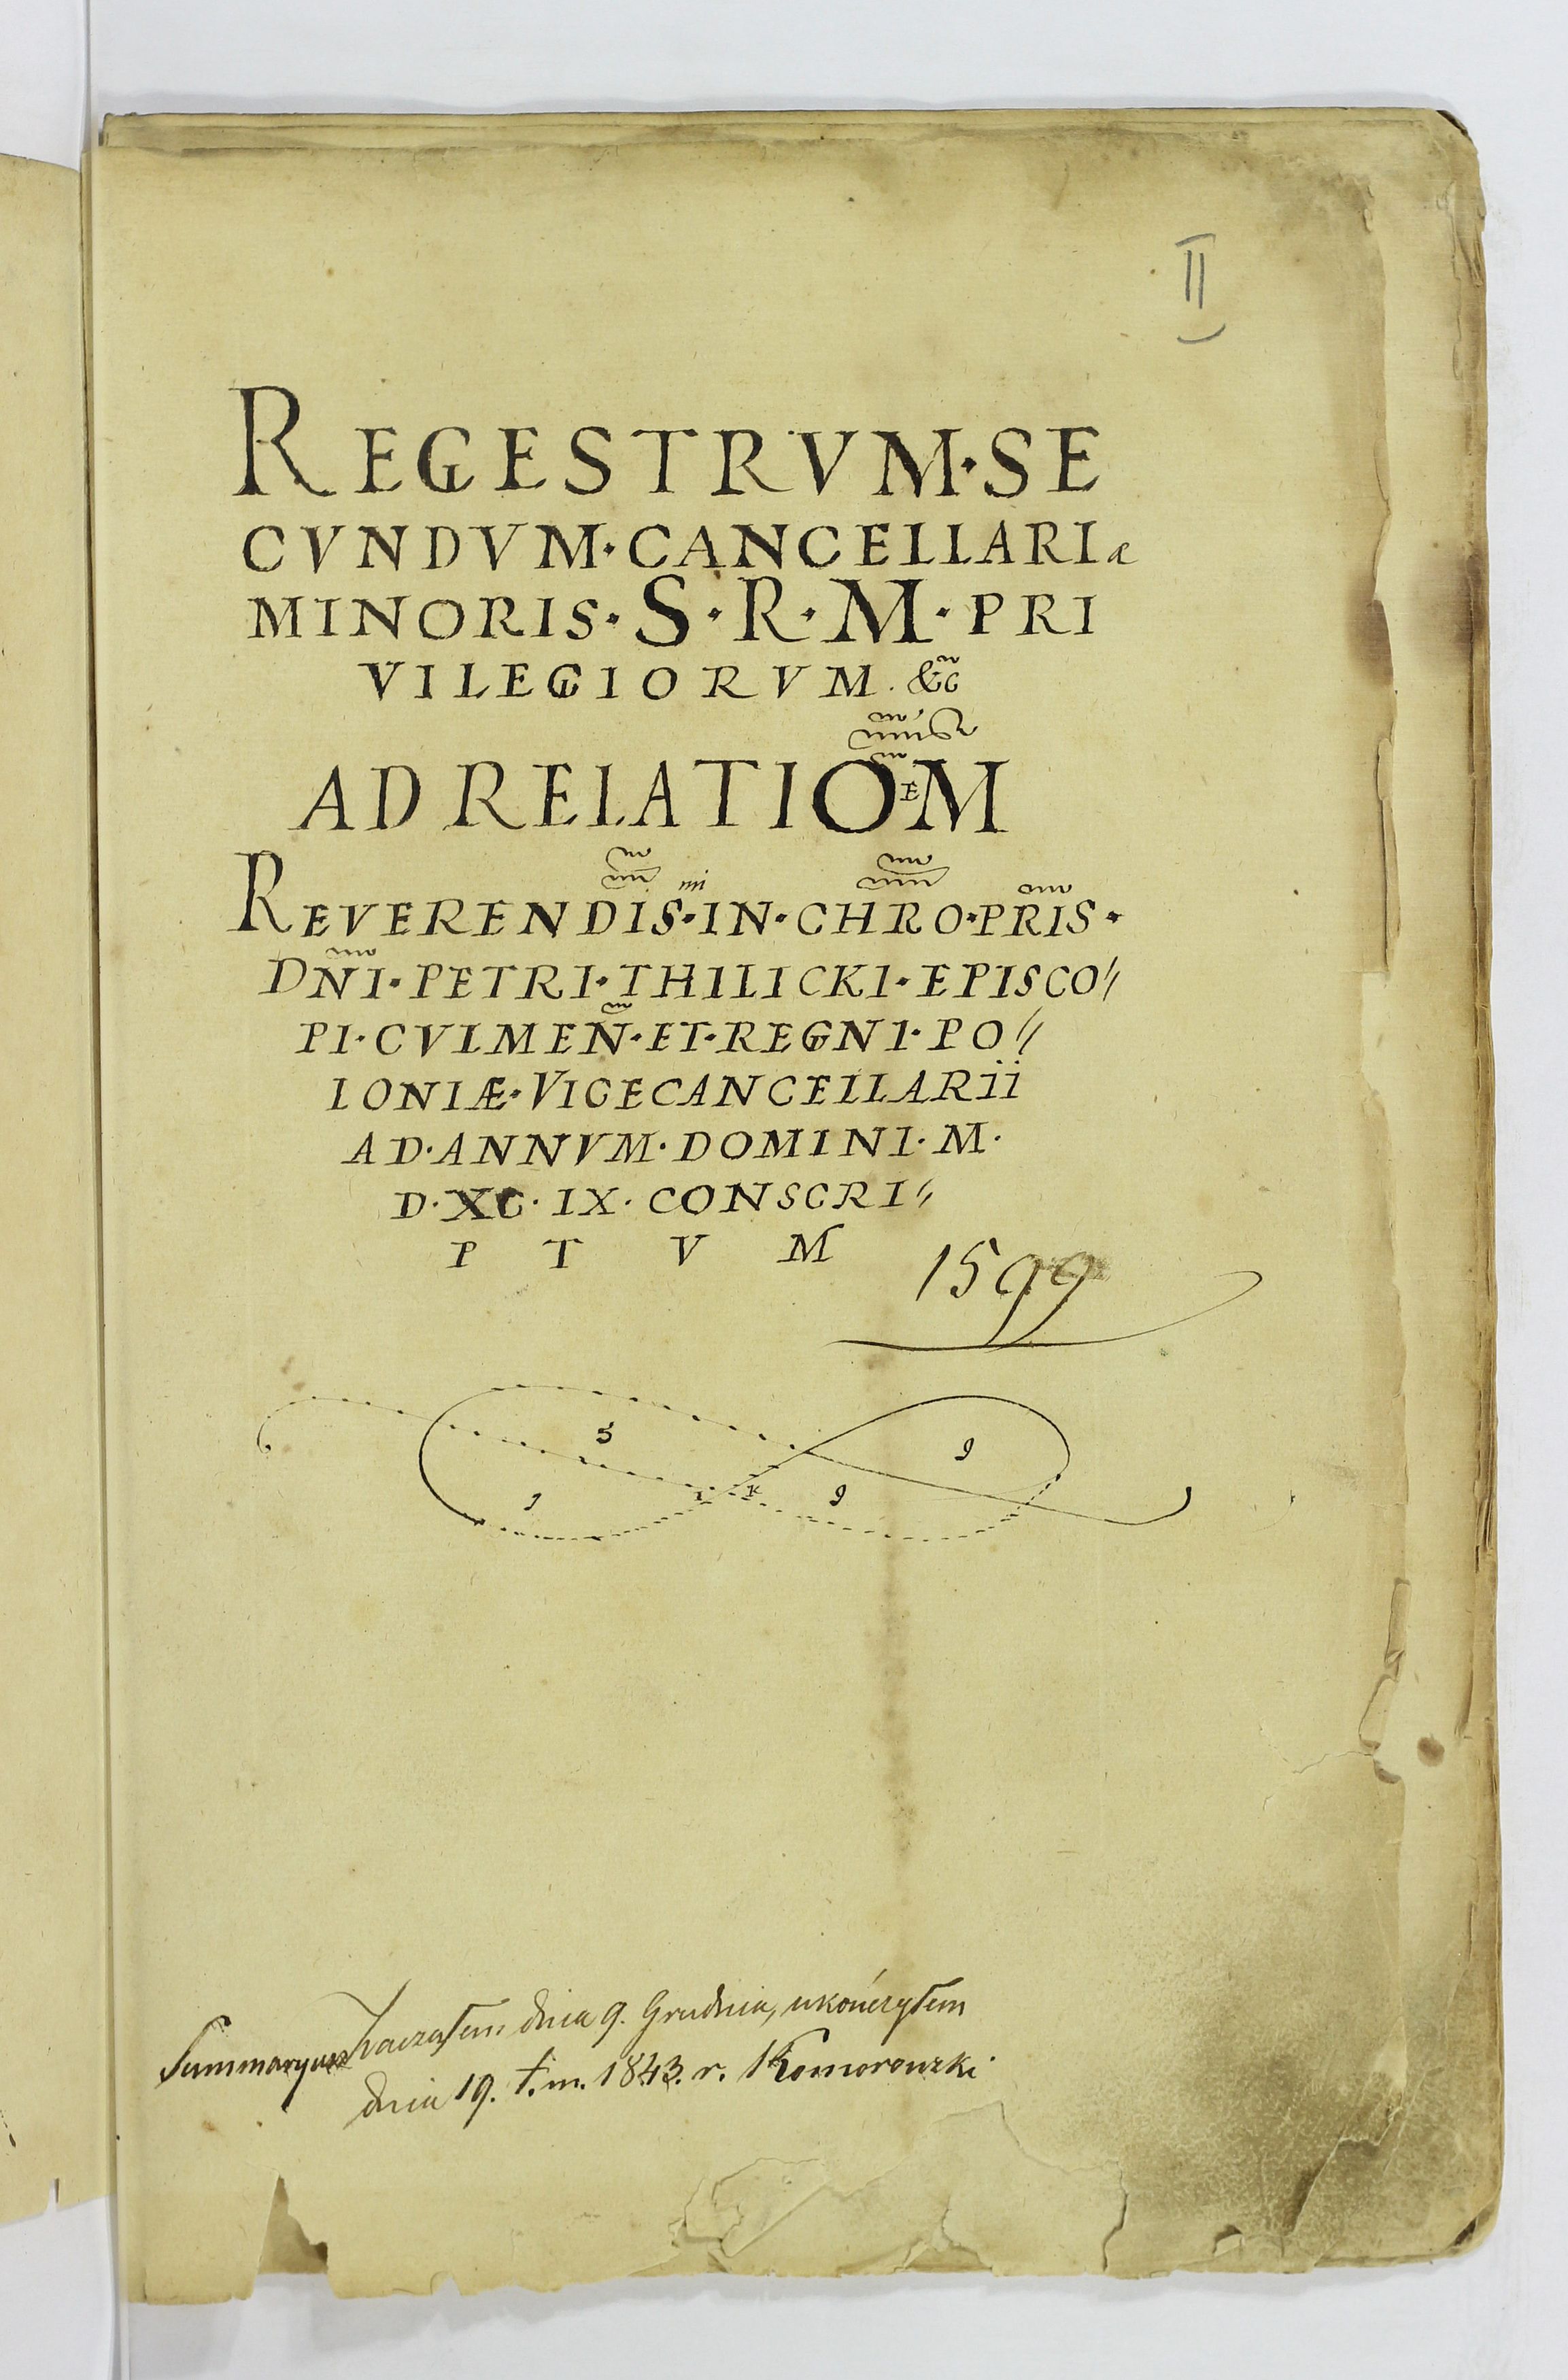 II
REGESTRVM·SE
CVNDVM·CANCELLARIæ
MINORIS·S·R·M·PRI
VILEGIORVM. &c̃
AD RELATIOEM
REVERENDIS·mi IN·CHRO·PRIS·
DNI·PETRI·THILICKI·EPISCO//
PI·CVLMEN̄·ET·REGNI·PO//
LONIÆ·VICECANCELLARii
AD·ANNVM·DOMINI·M·
D·XC·IX·CONSCRI//
PTVM
1599
5 9
1 9
Summaryusz zacząłem dnia 9. Grudnia, ukończyłem
dnia 19. t.m. 1843. r. Komorowski